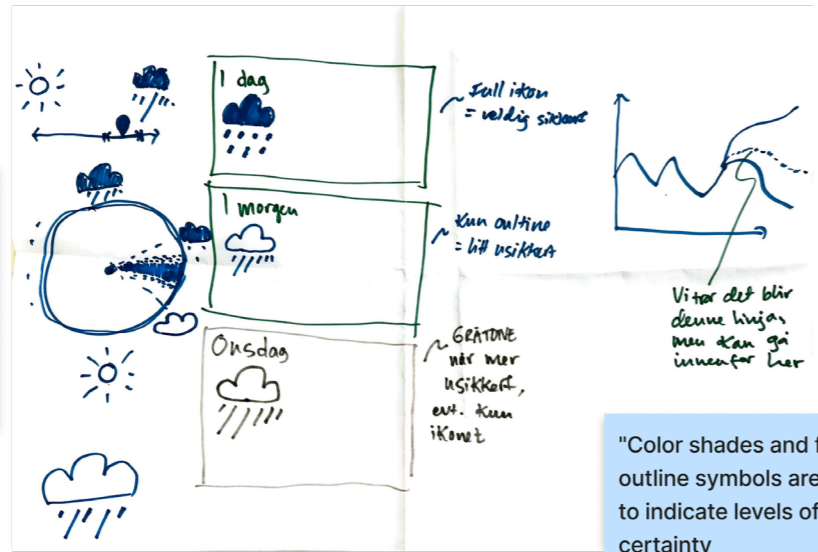 I dag
Full ikon
= veldig sikkert
I morgen
Kun outline
= litt usikkert
Onsdag
GRÅTONE
når mer
usikkert,
evt. kun
ikonet
Vi tror det blir
denne linja,
men kan gå
innenfor her
"Color shades and f
outline symbols are
to indicate levels of
certainty